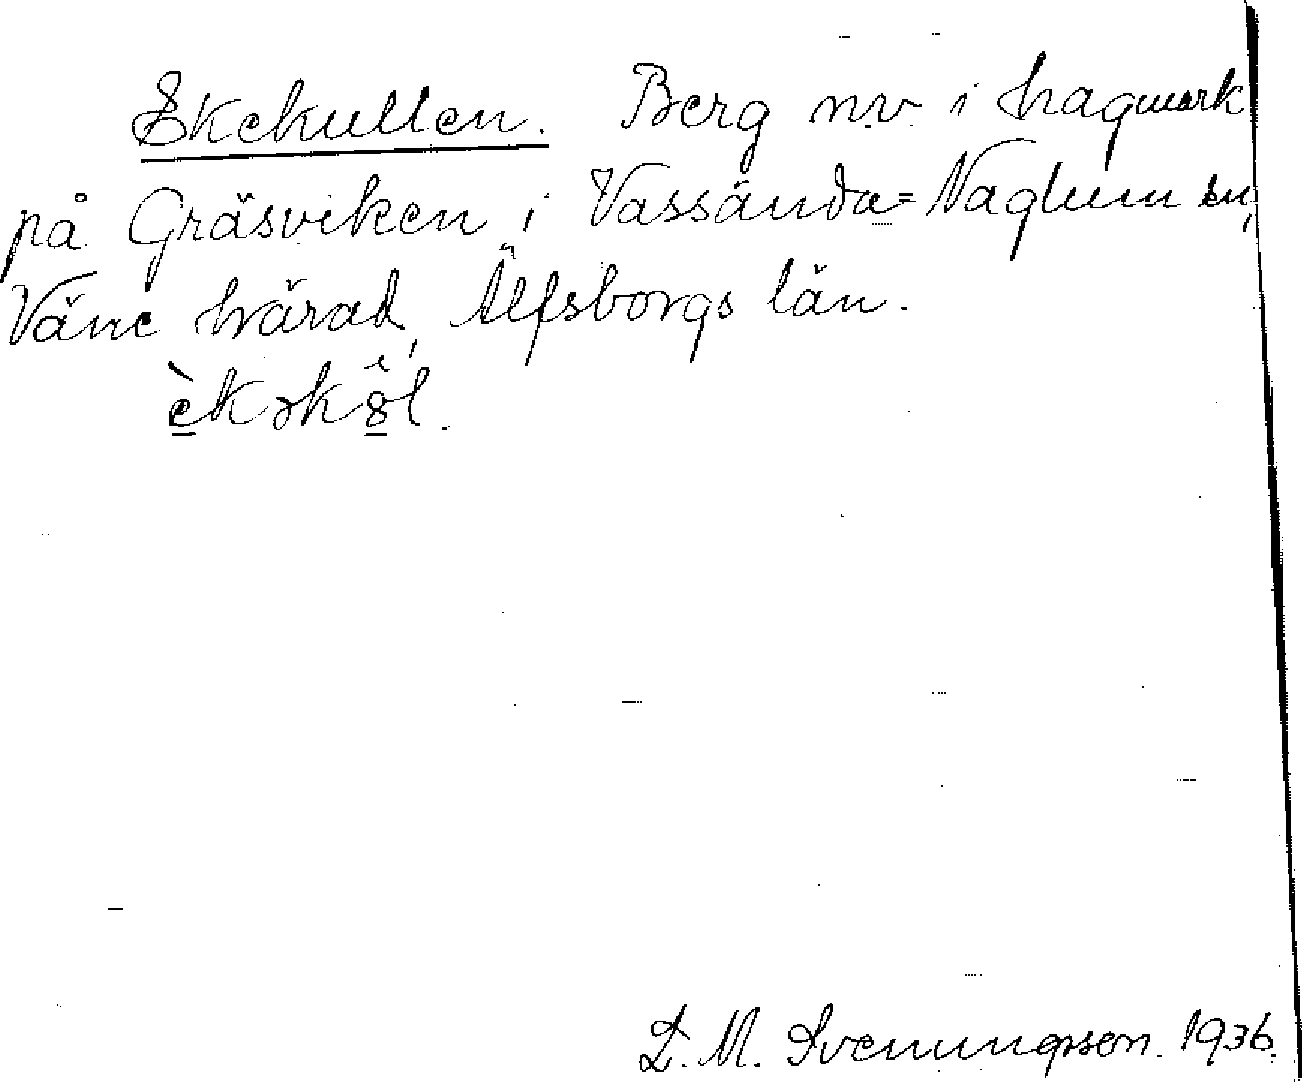 Ekekullen. Berg n.v. i hagmark
på Gräsviken i Vassända=Naglum sn,
Väne härad, Älfsborgs län.
D. M. Svenungsson. 1936.